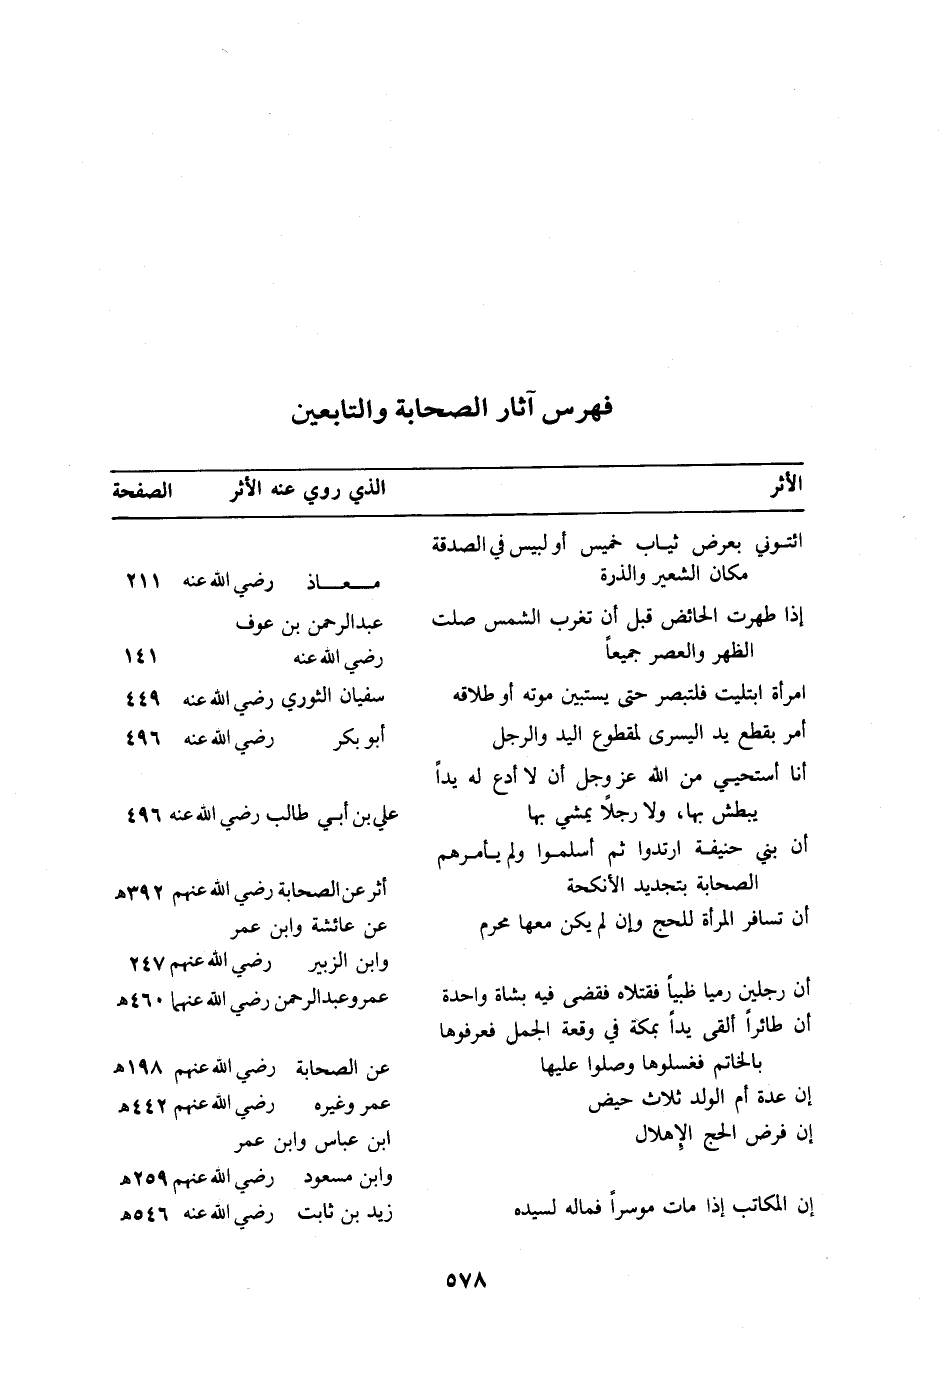 فهرس آثار الصحابة والتابعين
الأثر الذي روي عنه الأثر الصفحة
ائتوني بعرض ثياب خميس أو لبيس في الصدقة
مكان الشعير والذرة معاذ رضي الله عنه ٢١١
إذا طهرت الحائض قبل أن تغرب الشمس صلت عبدالرحمن بن عوف
الظهر والعصر جميعاً رضي الله عنه ١٤١
امرأة ابتليت فلتبصر حتى يستبين موته أو طلاقه سفيان الثوري رضي الله عنه ٤٤٩
أمر بقطع يد اليسرى لمقطوع اليد والرجل أبو بكر رضي الله عنه ٤٩٦
أنا أستحيي من الله عز وجل أن لا أدع له يداً
يبطش بها، ولا رجلاً يمشي بها علي بن أبي طالب رضي الله عنه ٤٩٦
أن بني حنيفة ارتدوا ثم أسلموا ولم يأمرهم
الصحابة بتجديد الأنكحة أثر عن الصحابة رضي الله عنهم ٣٩٢هـ
أن تسافر المرأة للحج وإن لم يكن معها محرم عن عائشة وابن عمر
وابن الزبير رضي الله عنهم ٢٤٧
أن رجلين رميا ظبياً فقتلاه فقضى فيه بشاة واحدة عمر وعبدالرحمن رضي الله عنهما ٤٦٠هـ
أن طائراً ألقى يداً بمكة في وقعة الجمل فعرفوها
بالخاتم فغسلوها وصلوا عليها عن الصحابة رضي الله عنهم ١٩٨هـ
إن عدة أم الولد ثلاث حيض عمر وغيره رضي الله عنهم ٤٤٢هـ
إن فرض الحج الإهلال ابن عباس وابن عمر
وابن مسعود رضي الله عنهم ٢٥٩هـ
إن المكاتب إذا مات موسراً فماله لسيده زيد بن ثابت رضي الله عنه ٥٤٦هـ
٥٧٨